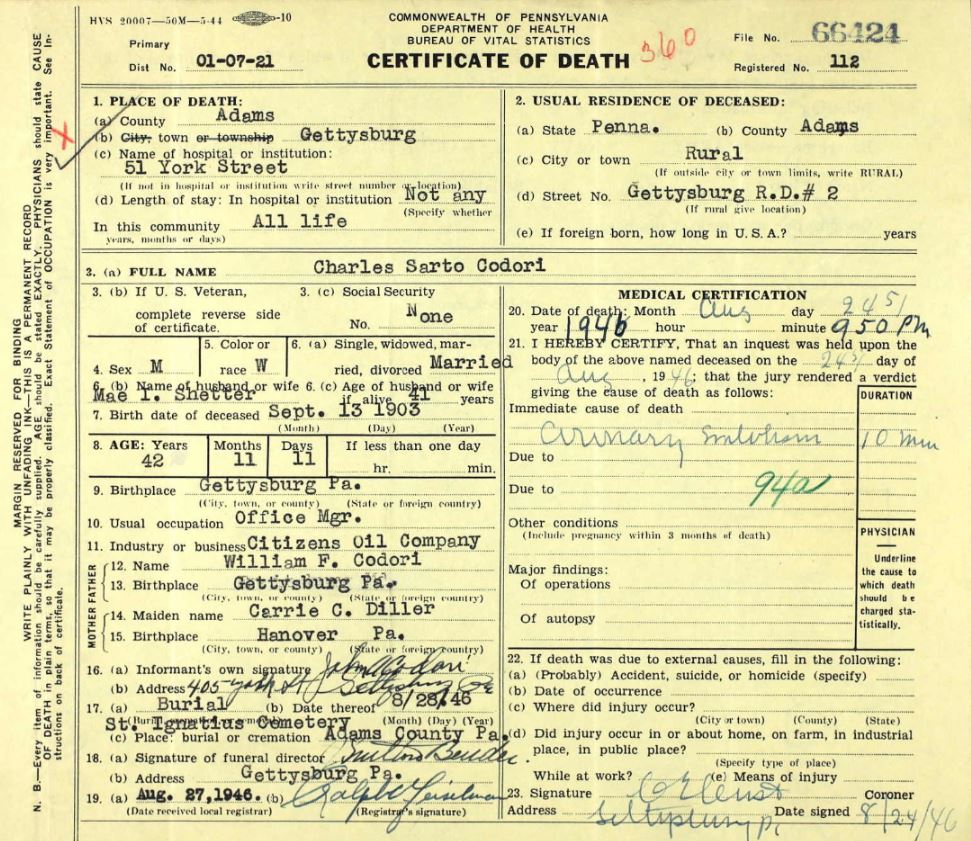 HVS 20007—50M—5-44 -10
COMMONWEALTH OF PENNSYLVANIA
DEPARTMENT OF HEALTH
BUREAU OF VITAL STATISTICS
CERTIFICATE OF DEATH
360
Primary
Dist No. 01-07-21
File No. 66424
Registered No. 112
N. B.—Every item of information should be carefully supplied. AGE should be stated EXACTLY. PHYSICIANS should state CAUSE
OF DEATH in plain terms, so that it may be properly classified. Exact Statement of OCCUPATION is very important. See In-
structions on back of certificate.
WRITE PLAINLY WITH UNFADING INK—THIS IS A PERMANENT RECORD
MARGIN RESERVED FOR BINDING
1. PLACE OF DEATH:
(a) County Adams
(b) City, town or township Gettysburg
(c) Name of hospital or institution:
51 York Street
(If not in hospital or institution write street number or location)
(d) Length of stay: In hospital or institution Not any
(Specify whether
In this community All life
years, months or days)
2. USUAL RESIDENCE OF DECEASED:
(a) State Penna. (b) County Adams
(c) City or town Rural
(If outside city or town limits, write RURAL)
(d) Street No. Gettysburg R.D.# 2
(If rural give location)
(e) If foreign born, how long in U. S. A.? years
3. (a) FULL NAME Charles Sarto Codori
3. (b) If U. S. Veteran,
complete reverse side
of certificate.
3. (c) Social Security
No. None
4. Sex M
5. Color or
race W
6. (a) Single, widowed, mar-
ried, divorced Married
6. (b) Name of husband or wife 6. (c) Age of husband or wife
Mae I. Shetter if alive 41 years
7. Birth date of deceased Sept. 13 1903
(Month) (Day) (Year)
8. AGE: Years Months Days If less than one day
42 11 11 hr. min.
9. Birthplace Gettysburg Pa.
(City, town, or county) (State or foreign country)
10. Usual occupation Office Mgr.
11. Industry or business Citizens Oil Company
FATHER
12. Name William F. Codori
13. Birthplace Gettysburg Pa.
(City, town, or county) (State or foreign country)
MOTHER
14. Maiden name Carrie C. Diller
15. Birthplace Hanover Pa.
(City, town, or county) (State or foreign country)
16. (a) Informant's own signature John A Codori
(b) Address 405 York St Gettysburg Pa
17. (a) Burial (b) Date thereof 8/28/46
(Month) (Day) (Year)
St. Ignatius Cemetery
(c) Place: burial or cremation Adams County Pa.
18. (a) Signature of funeral director Bender
(b) Address Gettysburg Pa.
19. (a) Aug. 27, 1946. (b) Ralph Heiselman
(Date received local registrar) (Registrar's signature)
MEDICAL CERTIFICATION
20. Date of death: Month Aug day 24
year 1946 hour minute 9 50 PM
21. I HEREBY CERTIFY, That an inquest was held upon the
body of the above named deceased on the 24 day of
Aug, 1946; that the jury rendered a verdict
giving the cause of death as follows:
DURATION
Immediate cause of death
10 min
Due to
Due to 94a
Other conditions
(Include pregnancy within 3 months of death)
Major findings:
Of operations
Of autopsy
PHYSICIAN
Underline
the cause to
which death
should be
charged sta-
tistically.
22. If death was due to external causes, fill in the following:
(a) (Probably) Accident, suicide, or homicide (specify)
(b) Date of occurrence
(c) Where did injury occur?
(City or town) (County) (State)
(d) Did injury occur in or about home, on farm, in industrial
place, in public place?
(Specify type of place)
While at work? (e) Means of injury
23. Signature Coroner
Address Gettysburg Pa Date signed 8/24/46